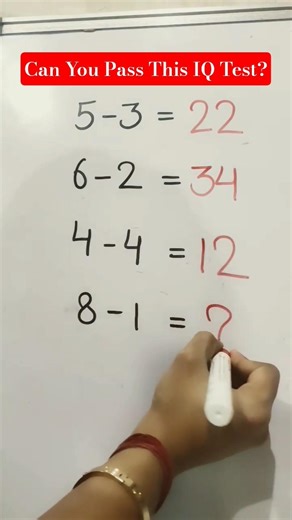 Can You Pass This IQ Test?
5-3 = 22
6-2 = 34
4-4 = 12
8-1 = ?